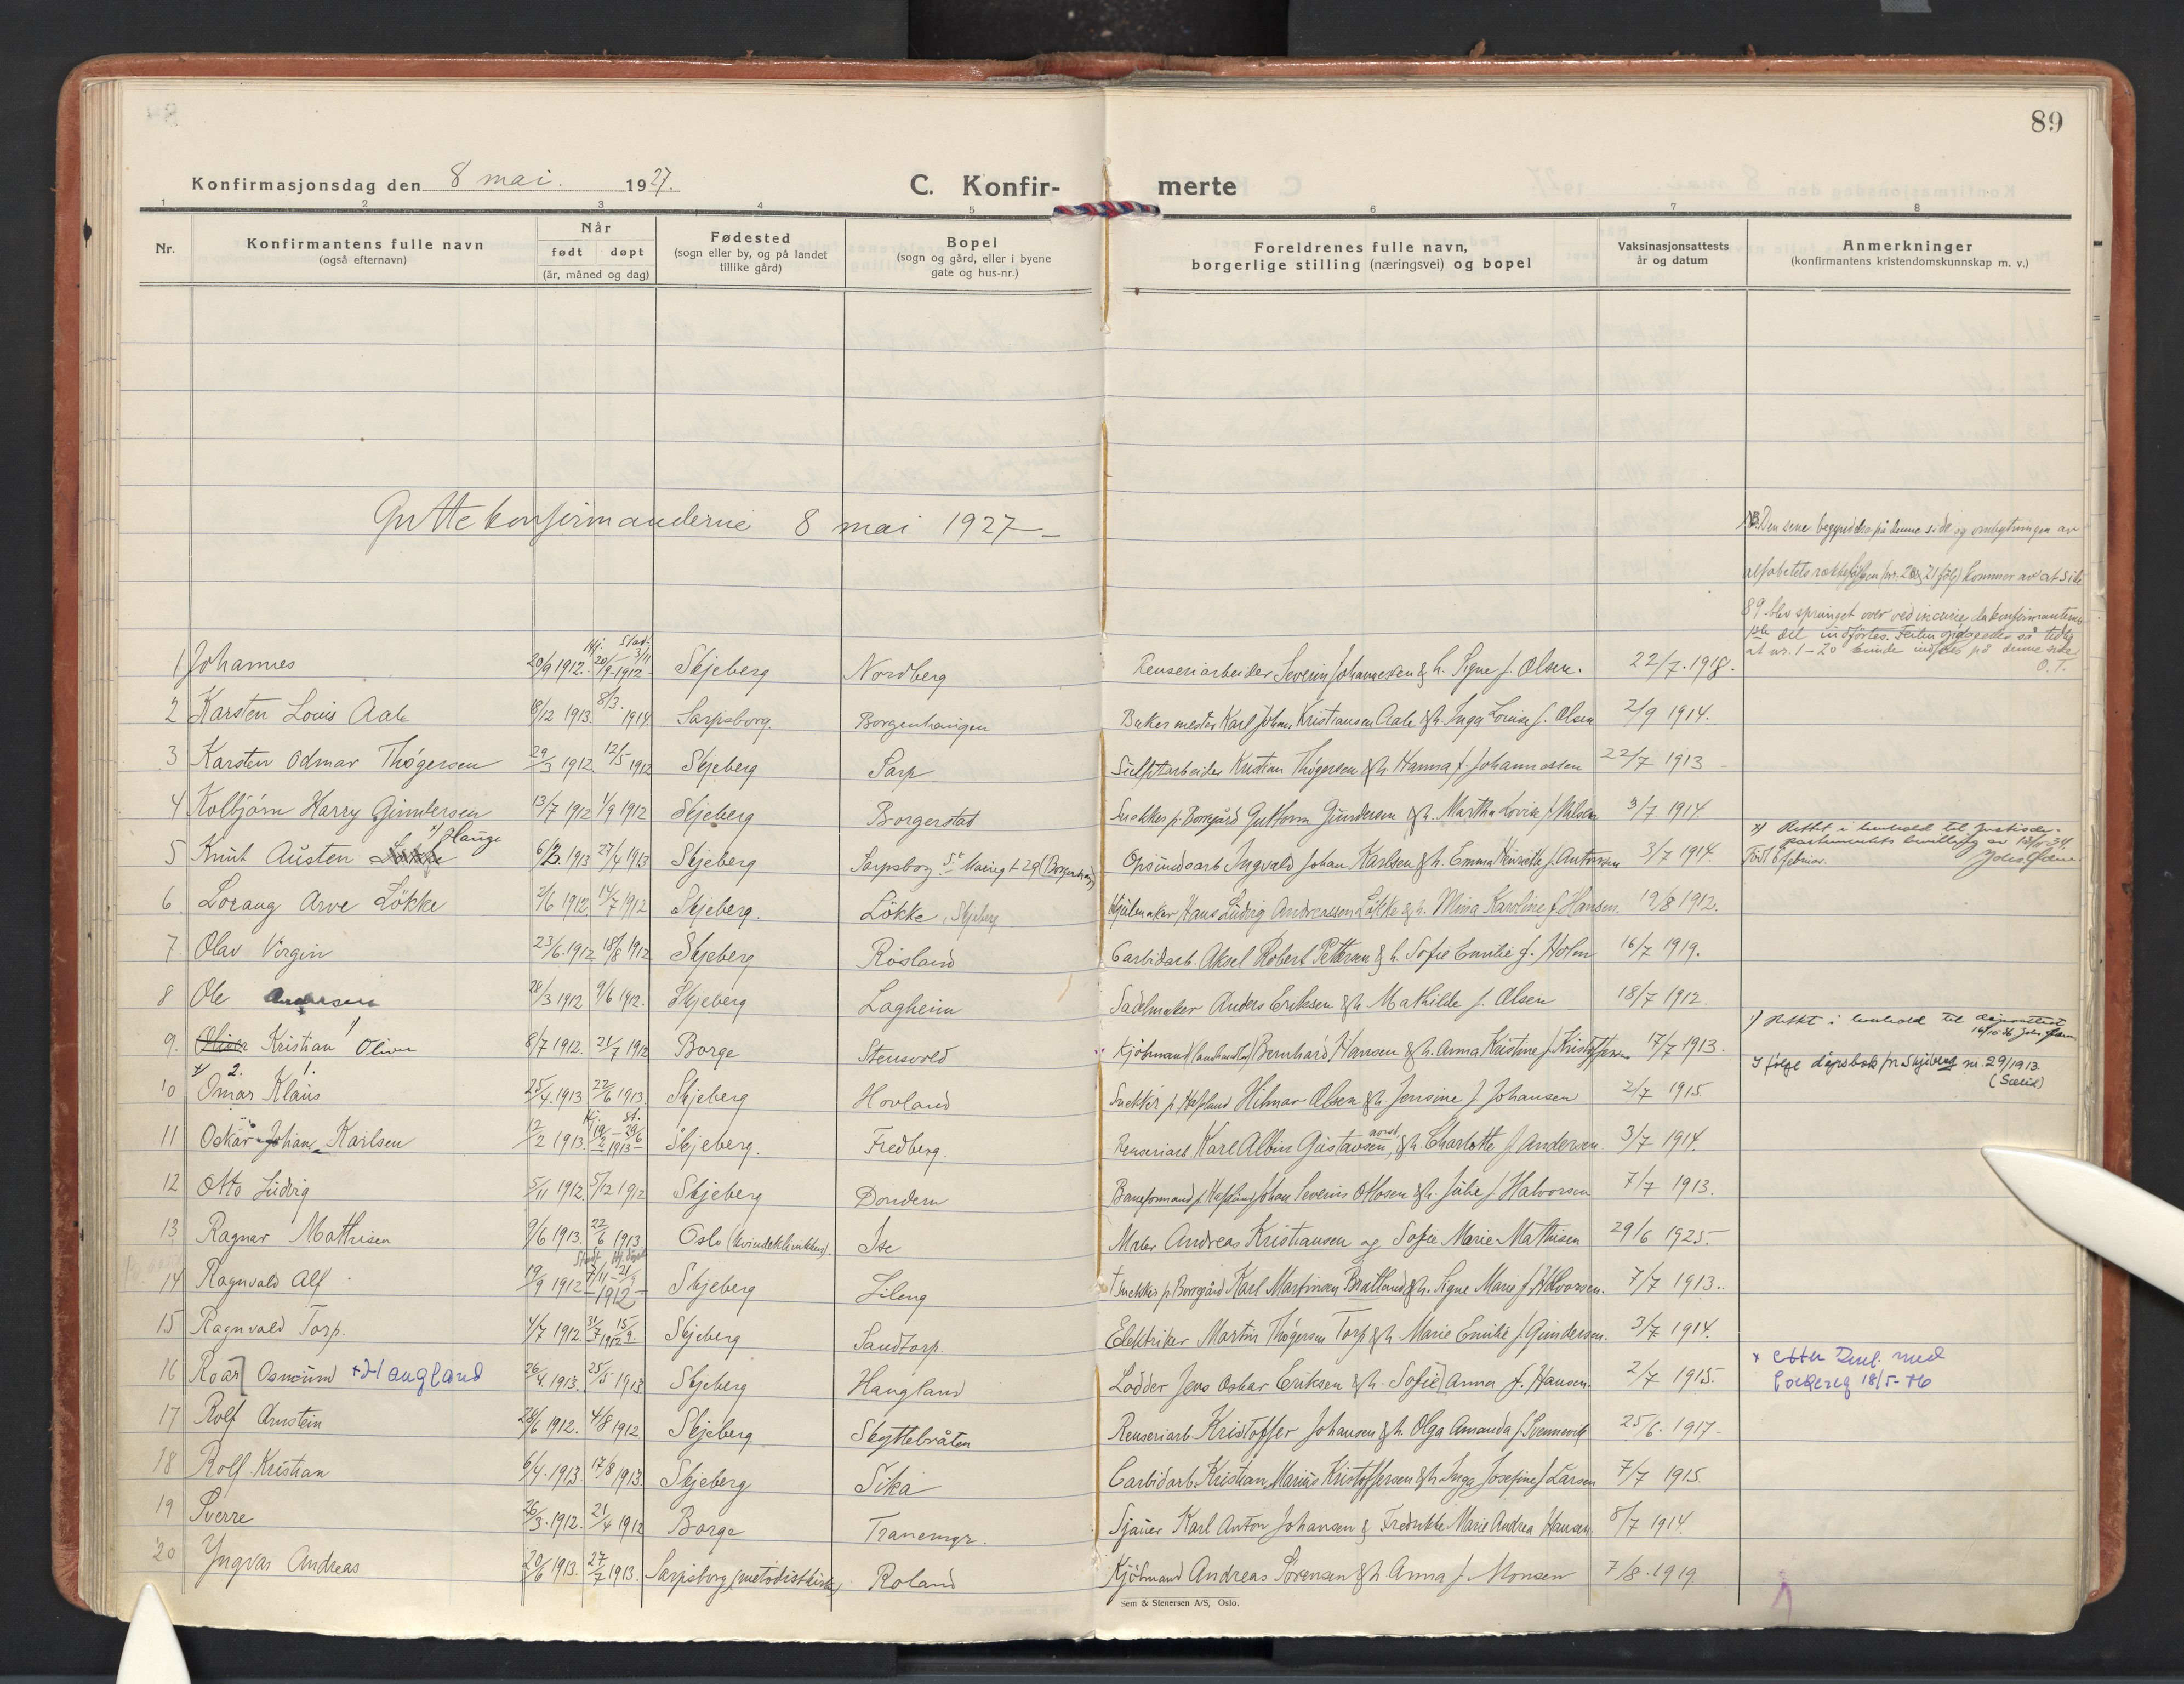 89
Konfirmasjonsdag den 8 mai. 1927.
C. Konfir- merte
1 2 3 4 5 6 7 8
Nr.
Konfirmantens fulle navn
(også efternavn)
Når
født døpt
(år, måned og dag)
Fødested
(sogn eller by, og på landet
tillike gård)
Bopel
(sogn og gård, eller i byene
gate og hus-nr.)
Foreldrenes fulle navn,
borgerlige stilling (næringsvei) og bopel
Vaksinasjonsattests
år og datum
Anmerkninger
(konfirmantens kristendomskunnskap m. v.)
Guttekonfirmanderne 8 mai 1927 –
NB Den sene begyndelse på denne side og ombytningen av
alfabetets rækkefølgen (nr. 20 og 21 følg) kommer av at side
89 blev sprunget over ved incurie da konfirmanternes
del indførtes. Feilen opdagedes så tidlig
at nr. 1-20 kunde indføres på denne side
O. T.
1 Johannes 20/9 1912. Hj. 20/9 Stad. 3/11 1912 Skjeberg Nordberg Renseriarbeider Severin Johannesen & h. Signe f. Olsen. 22/7. 1918.
2 Karsten Louis Aale 18/12 1913. 8/3. 1914 Sarpsborg. Borgenhaugen Bakermester Karl Johan Kristiansen Aale & h. Inga Lovise f. Olsen 2/9 1914.
3 Karsten Odmar Thøgersen 29/3 1912 12/5 1912 Skjeberg Sarp Sulfitarbeider Kristian Thøgersen & h. Hanna f. Johannessen 22/7 1913
4 Kolbjørn Harry Gundersen 13/7 1912 1/9 1912 Skjeberg Borgerstad Snekker p. Borregård Guttorm Gundersen & h. Martha Lovise f. Nilsen 3/7 1914.
x) Hauge
5 Knut Austen Løkke 6/2. 1913 27/4 1913 Skjeberg Sarpsborg St Mariegt 29 (Borgenhaug) Opsundsarb Ingvald Johan Karlsen & h. Emma Henriette f. Antonsen 3/7 1914.
x) Rettet i henhold til Justisde-
partementets bevilling av 12/11-34.
Født 6 februar.
6 Lorang Arve Løkke 2/6 1912 14/7 1912 Skjeberg. Løkke, Skjeberg Hjulmaker Hans Ludvig Andreassen Løkke & h. Mina Karoline f. Hansen. 19/8 1912.
7. Olav Virgin 23/6. 1912 18/8 1912 Skjeberg Røsland Carbidarb. Aksel Robert Pettersen & h. Sofie Emilie f. Holm 16/7 1919.
8 Ole Andersen 28/3 1912 9/6 1912. Skjeberg Lagheim Sadelmaker Anders Eriksen & h. Mathilde f. Olsen 18/7 1912.
9. Oliver Kristian Oliver 8/7 1912. 21/7 1912 Borge Stensvold Kjøbmand (landhandler) Bernhard Hansen & h. Anna Kristine f. Kristoffersen 17/7 1913.
1) Rettet i henhold til dåpsattest
10 Omar Klaus 25/4. 1913 22/6 1913. Skjeberg Hovland Snekker p. Hafslund Hilmar Olsen & h. Jensine f. Johansen 2/7 1915.
I følge dåpsbok for Skjeberg nr. 29/1913
11 Oskar Johan Karlsen 12/2 1913. Hj. 19/2 St. 29/6 1913 Skjeberg. Fredberg. Renseriarb. Karl Albin Gustavsen, & h. Charlotte f. Andersen. 3/7 1914.
12 Otto Ludvig 5/11 1912. 5/12 1912 Skjeberg Dondern Baneformand p. Hafslund Johan Severin Ottosen & h. Julie f. Halvorsen 7/7 1913.
13 Ragnar Mathisen 9/6 1913. 22/6 1913 Oslo (kvindeklinikken). Ise Maler Andreas Kristiansen og Sofie Marie Mathisen 29/6 1925.
14 Ragnvald Alf 19/9 1912 Stadf. 3/11 Hj. døpt 21/9 1912 Skjeberg Lileng † Snekker p. Borregård Karl Martinsen Bratland & h. Signe Marie f. Halvorsen. 7/7 1913.
15 Ragnvald Torp. 4/7 1912. 31/7 1912 15/9. Skjeberg Sandtorp. Elektriker Martin Thøgersen Torp & h. Marie Emilie f. Gundersen. 3/7 1914.
16 Roar Osmund + Haugland 26/4. 1913. 25/5 1913 Skjeberg Haugland Lodder Jens Oskar Eriksen & h. Sofie Anna f. Hansen. 2/7 1915.
x etter med
18/5-46
17 Rolf Arnstein 28/6 1912. 4/8 1912. Skjeberg Skyttebråten Renseriarb. Kristoffer Johansen & h. Olga Amanda f. Svennevik 25/6. 1917
18 Rolf Kristian 6/4. 1913 17/8 1913. Skjeberg Sika Carbidarb. Kristian Marius Kristoffersen & h. Inga Josefine f. Larsen 7/7 1915.
19 Sverre 26/3. 1912. 21/4 1912 Borge Tranemyr. Sjauer Karl Anton Johansen & Fredrikke Marie Andrea Hansen. 8/7 1914.
20 Yngvar Andreas 20/6 1913. 27/7 1913. Sarpsborg (metodistkirke) Roland Kjøbmand Andreas Sørensen & h Anna f. Monsen 7/8. 1919
Sem & Stenersen A/S, Oslo.